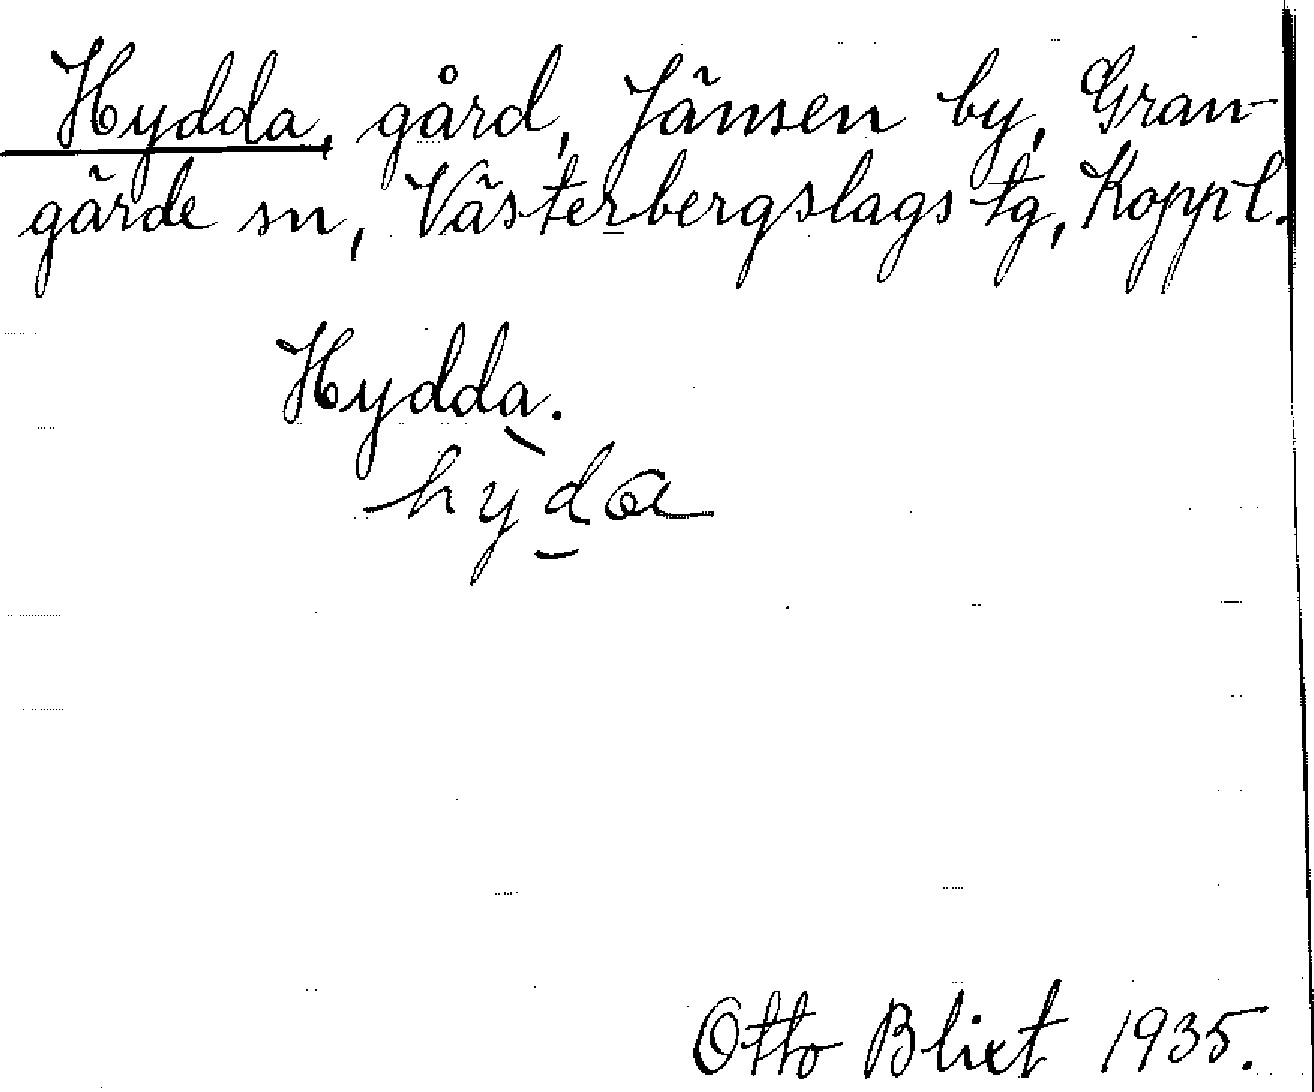 Hydda, gård, Jänsen by, Gran-
gärde sn, Västerbergslags tg, Koppl.
Hydda.
hỳd̲a
Otto Blixt 1935.